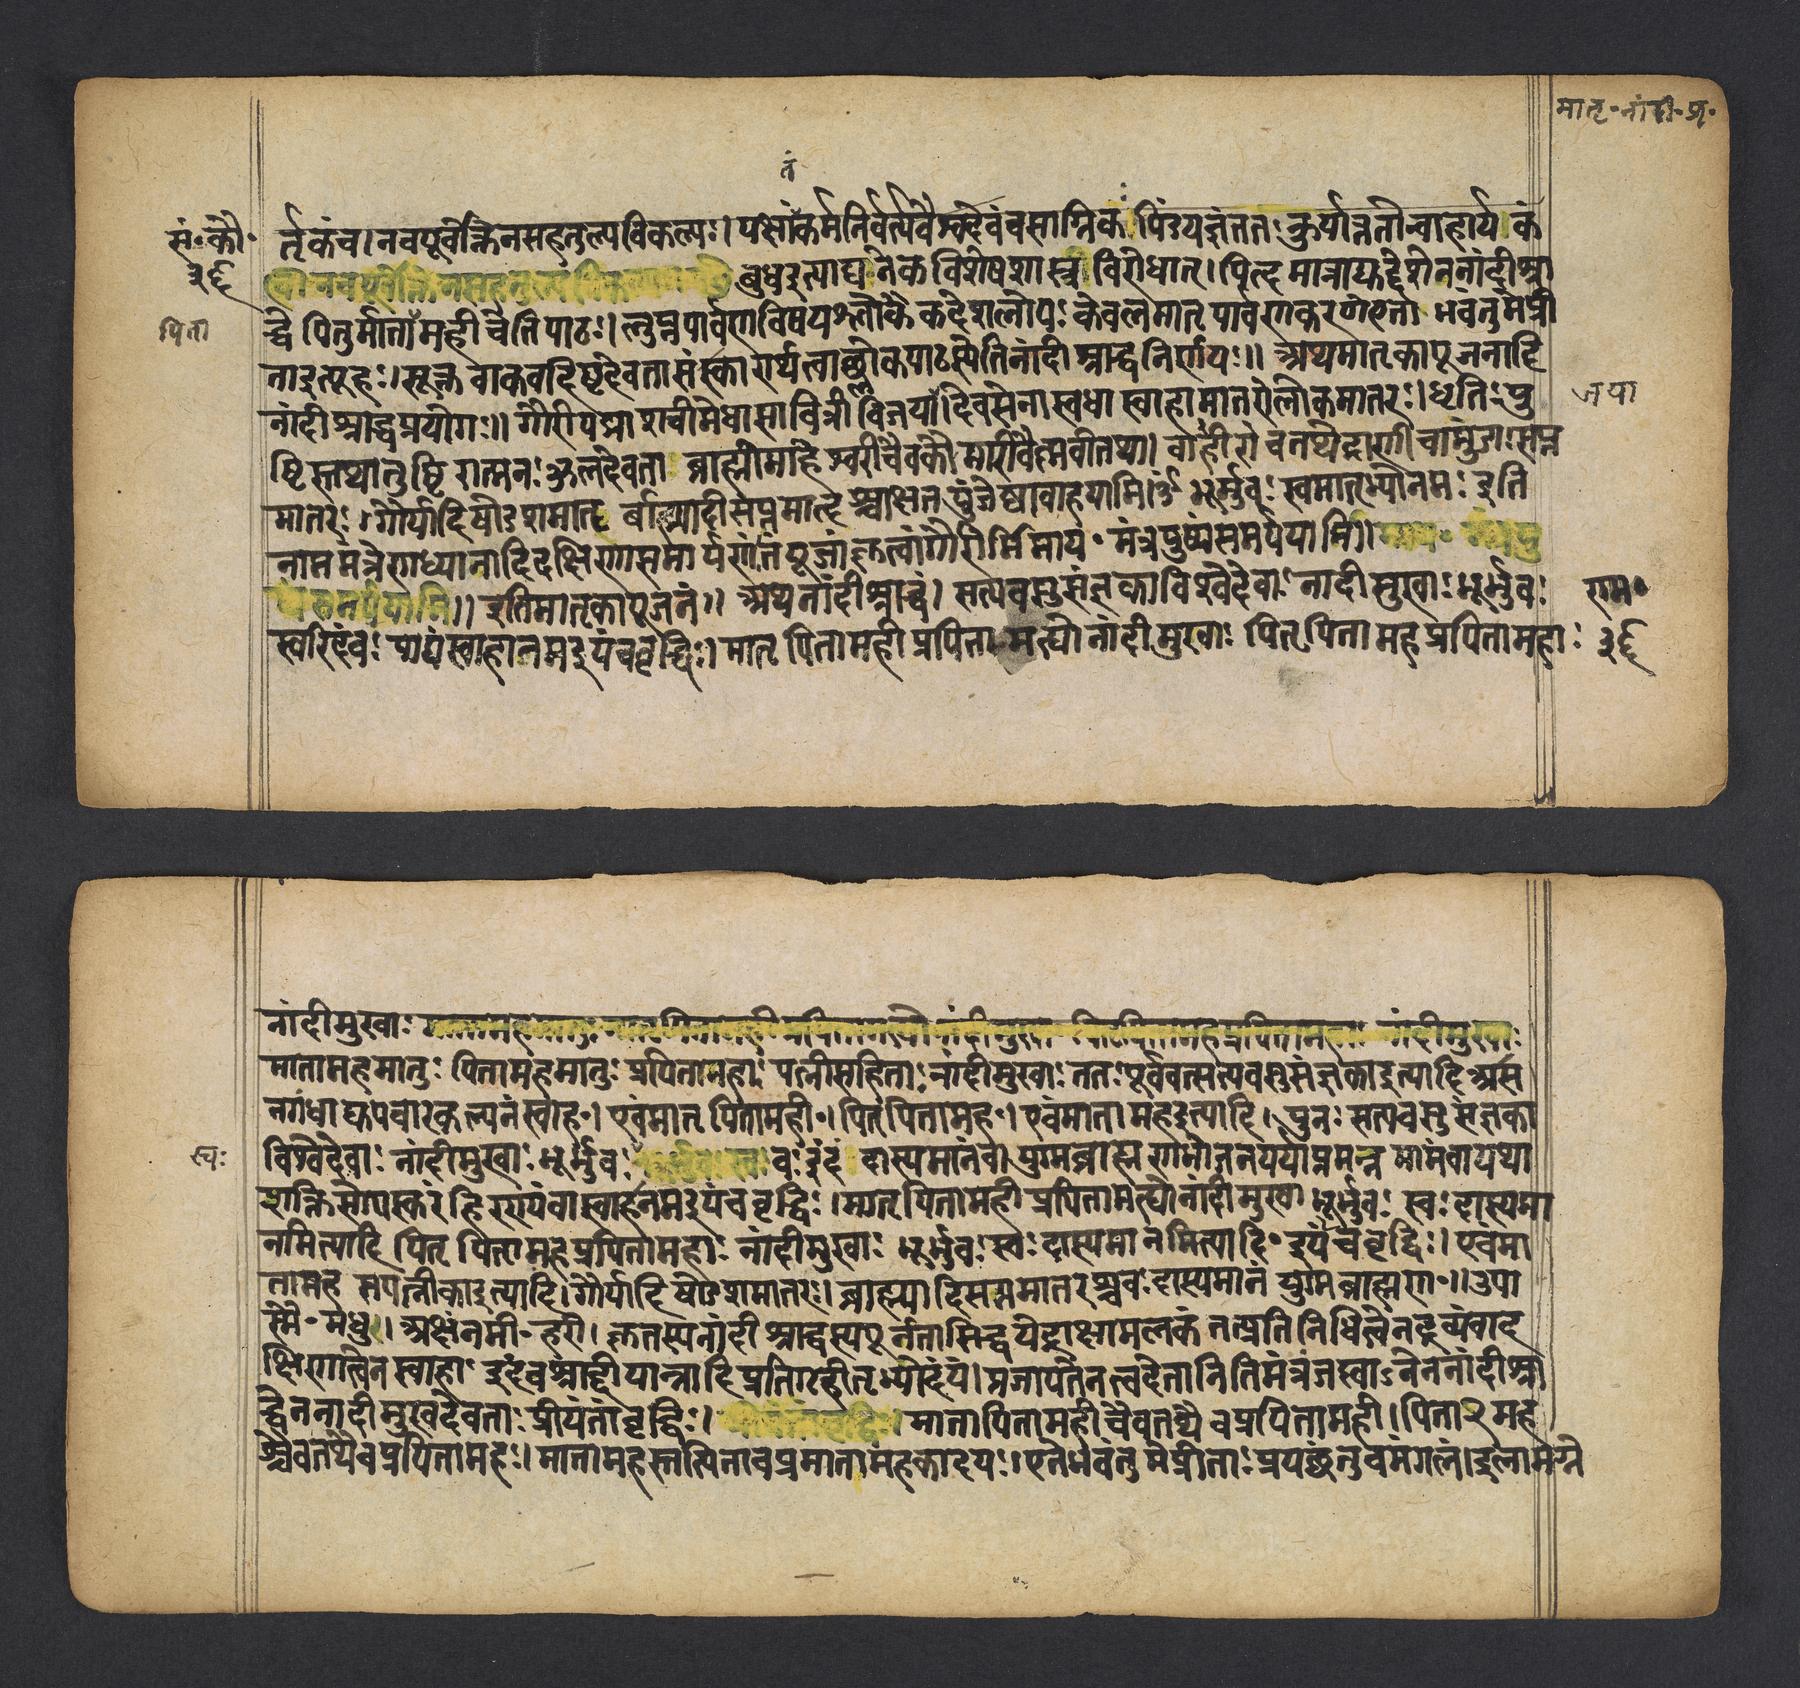 मातृ॰नांदी॰प्र॰
तं
सं॰कौ॰
र्तृकंच।नवपूर्वोक्तेनसहतुल्यविकल्पः। पक्षांतंकर्मनिर्वर्त्यवैश्वदेवंचसाग्निकः पिंडयज्ञंततः कुर्यात्ततोन्वाहार्यकं
३६
बुधइत्याद्यनेकविशेषशास्त्रविरोधात्। पितृमात्राद्युद्देशेननांदीश्रा
पिता
द्धे पितुर्मातामहीचेतिपाठः। लुप्तपार्वणविषयश्लोकैकदेशलोपः केवलमातृपार्वणकरणेएता भवंतुमेप्री
ताइत्यूहः। सूक्तवाकवदिष्टदेवतासंस्कारार्थत्वाच्छ्लोकपाठस्येतिनांदीश्राद्धनिर्णयः॥ अथमातृकापूजनादि
जया
नांदीश्राद्धप्रयोगः॥ गौरीपद्माशचीमेधासावित्रीविजया देवसेनास्वधास्वाहामातरोलोकमातरः। धृतिःपु
ष्टिस्तथातुष्टिरात्मनः कुलदेवता ब्राह्मीमाहेश्वरीचैवकौमारीवैष्णवीतथा। वाराहीचतथेंद्राणीचामुंडाःसप्त
मातरः। गौर्यादिषोडशमातॄर्ब्राह्म्यादीसप्तमातॄश्चाक्षतपुंजेष्वावाहयामि।ॐ भूर्भुवः स्वमातृभ्योनमः इति
नाममंत्रेणध्यानादिदक्षिणासमार्पणांतं पूजांकृत्वागौरीर्मिमाय॰ मंत्रपुष्पंसमर्पयामि॥
इतिमातृकापूजनं॥ अथनांदीश्राद्धं। सत्यवसुसंज्ञकाविश्वेदेवाः नांदीमुखाः भूर्भुवः
राम॰
स्वरिदंवः पाद्यंस्वाहानमइयंचवृद्धिः। मातृपितामहीप्रपितामह्योनांदीमुखाः पितृपितामहप्रपितामहाः
३६
नांदीमुखाः
मातामहमातुः पितामहमातुः प्रपितामहाः पत्नीसहिताः नांदीमुखाः ततः पूर्ववत्सत्यवसुसंज्ञकाइत्यादि आस
नगंधाद्युपचारकल्पनंस्वाहा॰। एवंमातृपितामही॰। पितृपितामह॰। एवंमातामहइत्यादि। पुनः सत्यवसुसंज्ञका
स्वः
विश्वेदेवाः नांदीमुखाः भूर्भुवः वः इदं दास्यमानंवा युग्मब्राह्मणभोजनपर्याप्तमन्नमामंवायथा
शक्तिसोपस्करंहिरण्यंवास्वाहानमइयंचवृद्धिः। मातृपितामहीप्रपितामह्योनांदीमुखा भूर्भुवः स्वः दास्यमा
नमित्यादि पितृपितामहप्रपितामहाः नांदीमुखाः भूर्भुवः स्वः दास्यमानमित्यादि॰ इयंचवृद्धिः। एवंमा
तामह सपत्नीकाइत्यादि। गौर्यादिषोडशमातरः। ब्राह्म्यादिसप्तमातरश्चवः दास्यमानं युग्मब्राह्मण॰॥ उपा
स्मै॰ मधु। अक्षन्नमी॰ हरी। कृतस्यनांदीश्राद्धस्यपूर्णतासिद्धयेद्राक्षामलकं तत्प्रतिनिधित्वेनद्रव्यंवाद
क्षिणात्वेनस्वाहा॰ इदंवःश्राद्धीयान्नादिप्रतिग्रहीतृभ्योदेयं। प्रजापतेनत्वदेतानितिमंत्रंजप्त्वाऽनेननांदीश्रा
द्धेननांदीमुखदेवताः प्रीयंतांवृद्धिः। मातापितामहीचैवतथैवप्रपितामही। पिता२मह
श्चैवतथैवप्रपितामहः। मातामहस्तत्पिताचप्रमातामहकादयः। एतेभवंतुमेप्रीताः प्रयच्छंतुचमंगलं। इलामग्ने